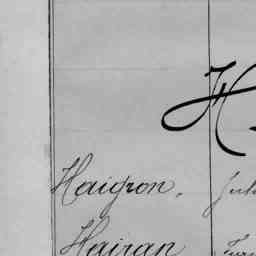 H
Haigron, Jul
Hairan